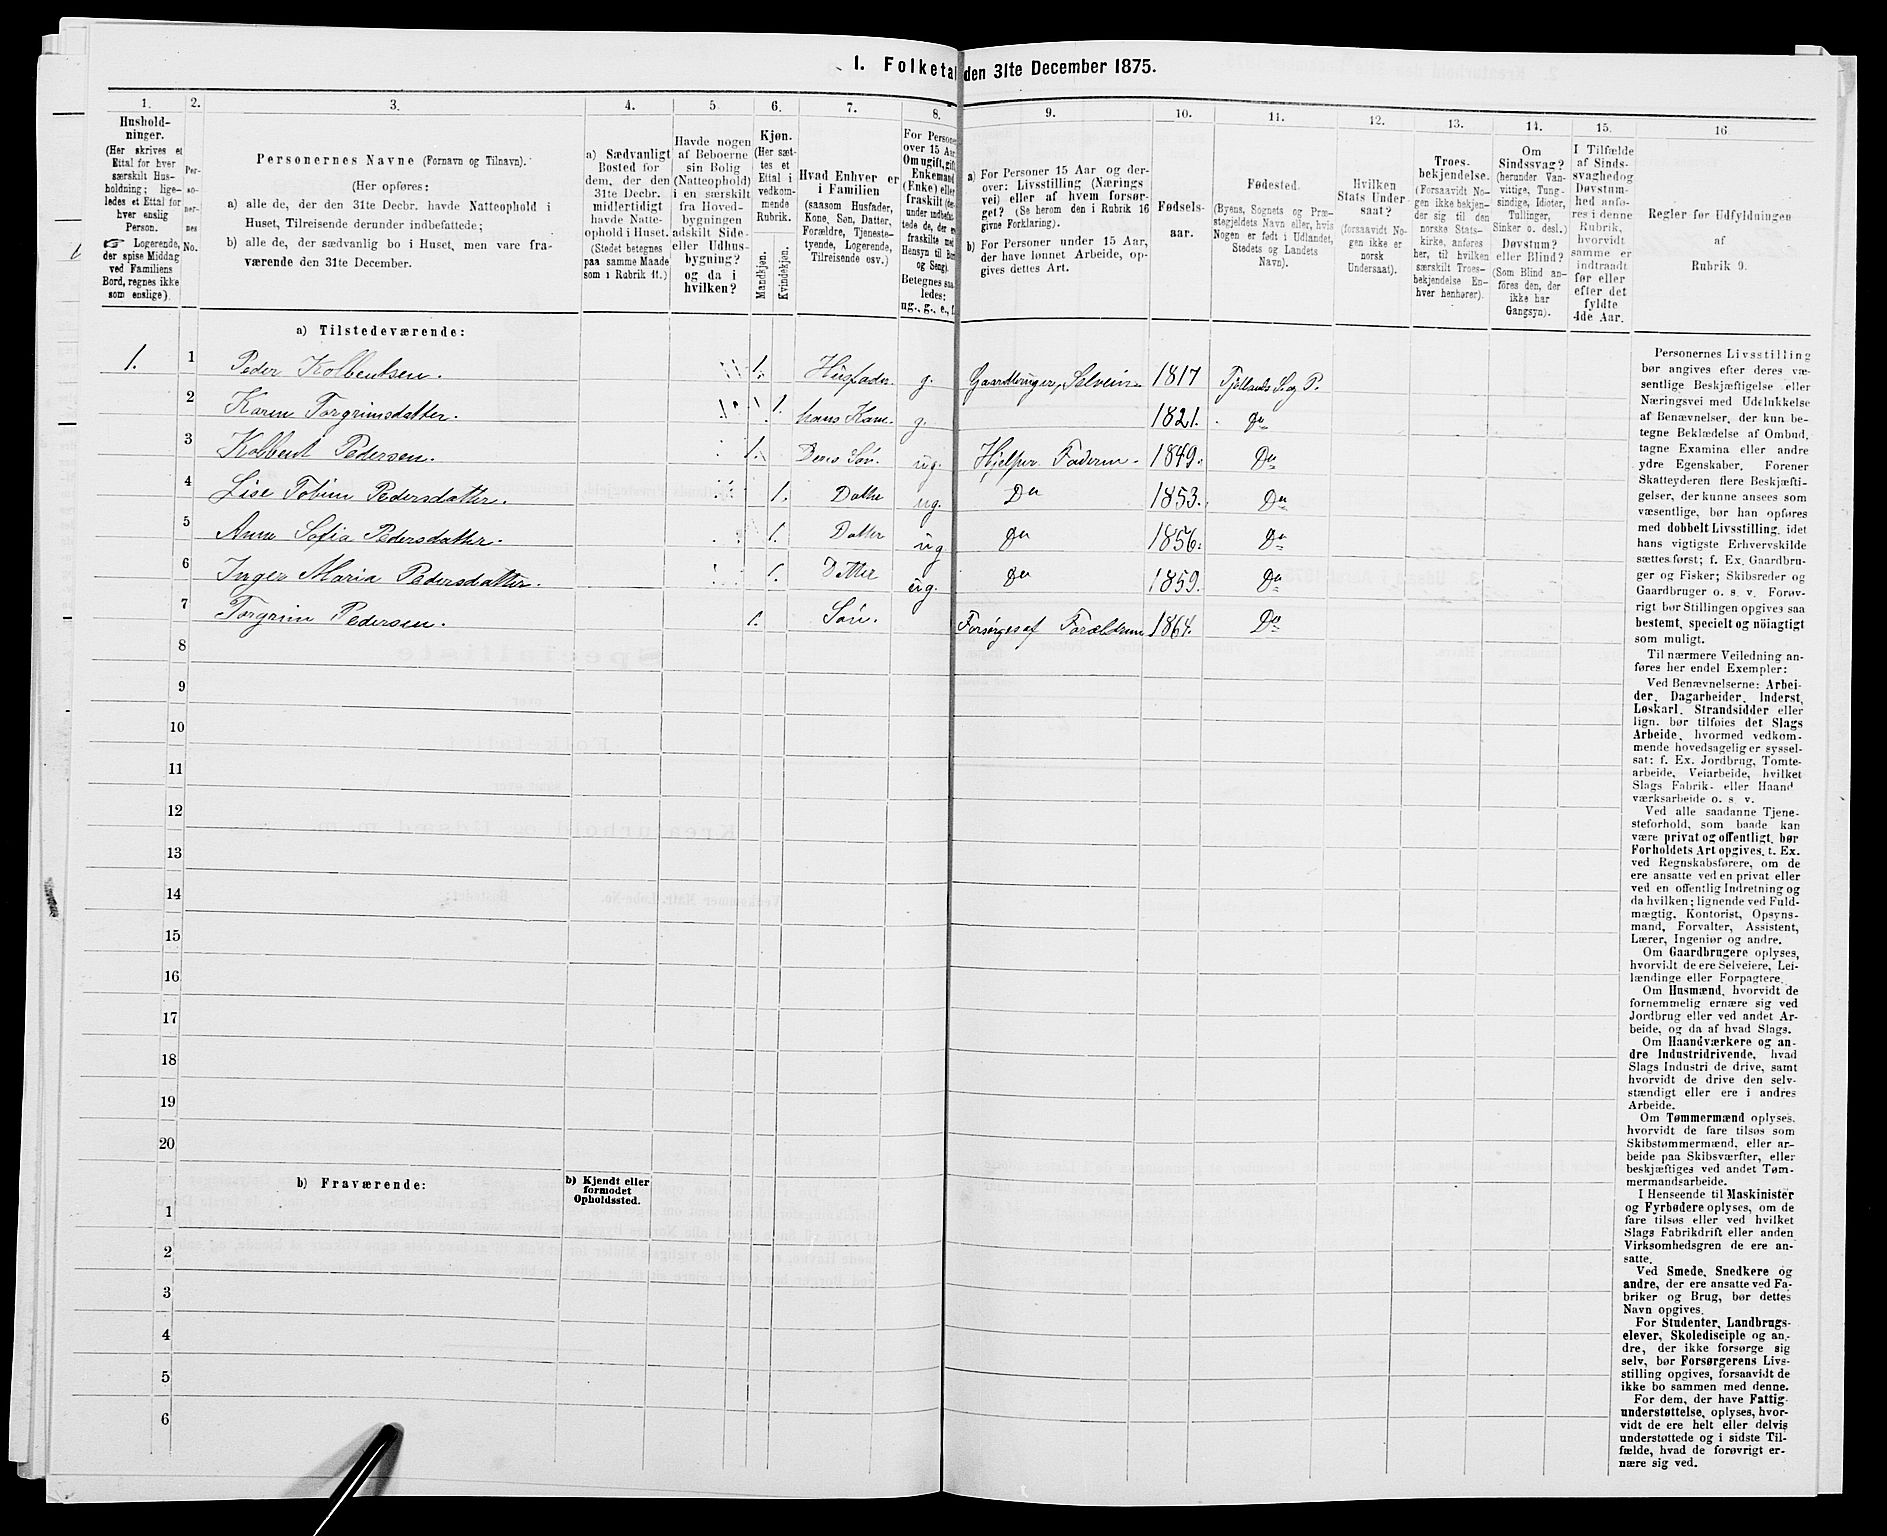 1. Folketal den 31te December 1875.
1. 2. 3. 4. 5. 6. 7. 8. 9. 10. 11. 12. 13. 14. 15. 16.
Hushold-
ninger.
(Her skrives et
Ettal for hver
særskilt Hus-
holdning; lige-
ledes et Ettal for
hver enslig
Person.
☞ Logerende,
der spise Middag
ved Familiens
Bord, regnes ikke
som enslige).
Per-
so-
ner-
nes
No.
Personernes Navne (Fornavn og Tilnavn).
(Her opføres:
a) alle de, der den 31te Decbr. havde Natteophold i
Huset, Tilreisende derunder indbefattede;
b) alle de, der sædvanlig bo i Huset, men vare fra-
værende den 31te December.
a) Sædvanligt
Bosted for
dem, der den
31te Decbr.
midlertidigt
havde Natte-
ophold i Huset.
(Stedet betegnes
paa samme Maade
som i Rubrik 11.)
Havde nogen
af Beboerne
sin Bolig
(Natteophold)
i en særskilt
fra Hoved-
bygningen
adskilt Side-
eller Udhus-
bygning?
og da i
hvilken?
Kjøn.
(Her sæt-
tes et
Ettal i
vedkom-
mende
Rubrik.
Mandkjøn.
Kvindekjøn.
Hvad Enhver er
i Familien
(saasom Husfader,
Kone, Søn, Datter,
Forældre, Tjeneste-
tyende, Logerende,
Tilreisende osv.)
For Persone
over 15 Aar
Om ugift, gift
Enkemand
(Enke) eller
fraskilt (der-
under indbefat-
tede de, der er
fraskilte med
Hensyn til Bor
og Seng).
Betegnes saa-
ledes:
ug., g., e., f.
a) For Personer 15 Aar og der-
over: Livsstilling (Nærings
vei) eller af hvem forsør-
get? (Se herom den i Rubrik 16
givne Forklaring).
b) For Personer under 15 Aar,
der have lønnet Arbeide, op-
gives dettes Art.
Fødsels-
aar.
Fødested.
(Byens, Sognets og Præ-
stegjeldets Navn eller, hvis
Nogen er født i Udlandet,
Stedets og Landets
Navn).
Hvilken
Stats Under-
saat?
(forsaavidt No-
gen ikke er
norsk
Undersaat).
Troes-
bekjendelse.
(Forsaavidt No-
gen ikke bekjen-
der sig til den
norske Stats-
kirke, anføres
her, til hvilken
særskilt Troes-
bekjendelse En-
hver henhører).
Om
Sindssvag?
(herunder Van-
vittige, Tung-
sindige, Idioter,
Tullinger,
Sinker o. desl.)
Døvstum?
eller Blind?
(Som Blind an-
føres den, der
ikke har
Gangsyn).
I Tilfælde
af Sinds-
svaghed og
Døvstum-
hed anfø-
res i denne
Rubrik,
hvorvidt
samme er
indtraadt
før eller
efter det
fyldte
4de Aar.
Regler før Udfyldningen
af
Rubrik 9.
a) Tilstedeværende:
1. 1 Peder Kolbentsen. 1. Husfader g. Gaardbruger, Selveier 1817 Fjellands S. og P.
2 Karen Torgrimsdatter. 1. hans Kone. g. 1821. Do
3 Kolbent Pedersen. 1. Deres Søn. ug. Hjelper Faderen 1849. Do
4 Lise Tobine Pedersdatter. 1. Datter ug. Do 1853. Do
5 Anne Sofia Pedersdatter. 1. Datter ug Do 1856. Do
6 Inger Maria Pedersdatter. 1. Datter ug. Do 1859. Do
7 Torgrim Pedersen. 1. Søn. Forsørges af Forældrene 1864. Do
8
9
10
11
12
13
14
15
16
17
18
19
20
b) Fraværende:
b) Kjendt eller
formodet
Opholdssted.
1
2
3
4
5
6
Personernes Livsstilling
bør angives efter deres væ-
sentlige Beskjæftigelse eller
Næringsvei med Udelukkelse
af Benævnelser, der kun be-
tegne Beklædelse af Ombud,
tagne Examina eller andre
ydre Egenskaber. Forener
Skatteyderen flere Beskjæfti-
gelser, der kunne ansees som
væsentlige, bør han opføres
med dobbelt Livsstilling, idet
hans vigtigste Erhvervskilde
sættes først; f. Ex. Gaardbru-
ger og Fisker; Skibsreder og
Gaardbruger o. s. v. Forøv-
rigt bør Stillingen opgives saa
bestemt, specielt og nöiagtigt
som muligt.
Til nærmere Veiledning an-
føres her endel Exempler:
Ved Benævnelserne: Arbei-
der, Dagarbeider, Inderst,
Løskarl, Strandsidder eller
lign. bør tilføies det Slags
Arbeide, hvormed vedkom-
mende hovedsagelig er syssel-
sat; f. Ex. Jordbrug, Tomte-
arbeide, Veiarbeide, hvilket
Slags Fabrik- eller Haand
værksarbeide o. s. v.
Ved alle saadanne Tjene-
steforhold, som baade kan
være privat og offentligt, bør
Forholdets Art opgives, t. Ex.
ved Regnskabsførere, om de
ere ansatte ved en privat eller
ved en offentlig Indretning og
da hvilken; lignende ved Fuld-
mægtig, Kontorist, Opsyns-
mand, Forvalter, Assistent,
Lærer, Ingeniør og andre.
Om Gaardbrugere oplyses,
hvorvidt de ere Selveiere, Lei-
lændinge eller Forpagtere.
Om Husmænd, hvorvidt de
fornemmelig ernære sig ved
Jordbrug eller ved andet Ar-
beide, og da af hvad Slags.
Om Haandværkere og an-
dre Industridrivende, hvad
Slags Industri de drive, samt
hvorvidt de drive den selv-
stændigt eller ere i andres
Arbeide.
Om Tømmermænd oplyses,
hvorvidt de fare tilsøs som
Skibstømmermænd, eller ar-
beide paa Skibsværfter, eller
beskjæftiges ved andet Tøm-
mermandsarbeide.
I Henseende til Maskinister
og Fyrbødere oplyses, om de
fare tilsøs eller ved hvilket
Slags Fabrikdrift eller anden
Virksomhedsgren de ere an-
satte.
Ved Smede, Snedkere og
andre, der ere ansatte ved Fa-
briker og Brug, bør dettes
Navn opgives.
For Studenter, Landbrugs-
elever, Skoledisciple og an-
dre, der ikke forsørge sig
selv, bør Forsørgerens Livs-
stilling opgives, forsaavidt de
ikke bo sammen med denne.
For dem, der have Fattig-
understøttelse, oplyses, hvor-
vidt de ere helt eller delvis
understøttede og i sidste Til-
fælde, hvad de forøvrigt er-
nære sig ved.